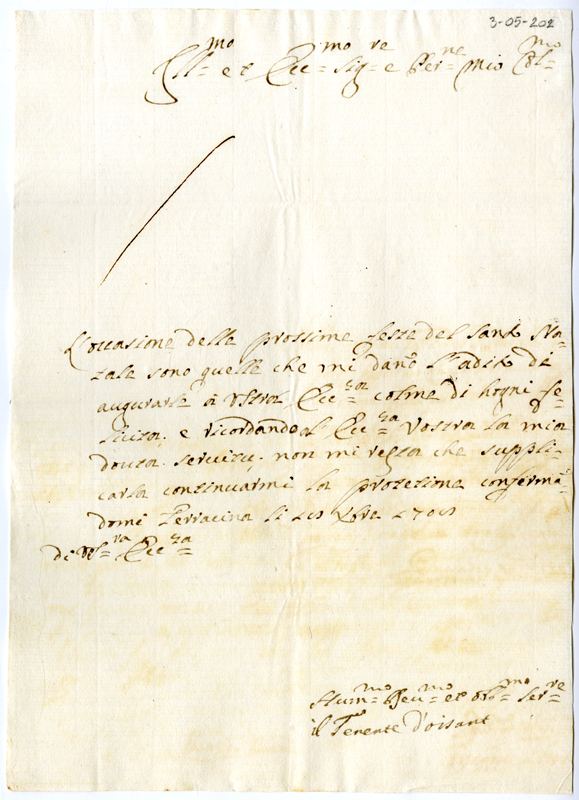 3-05-202
Ill=mo et Ecc=mo Sig=re e Pẽr=ne Mio Col=mo
L'occasione delle prossime feste del Santo Na-
tale sono quelle che mi dano l'adito di
augurarle à Vstra Ecc=za colme di hogni fe-
licita. e ricordando al Ecc=za Vostra la mia
douta seruitu. non mi resta che suppli-
carla continuarmi la protetione conferma-
domi Terracina li
di Vos=ra Ecc=za
Hum=mo Deu=mo et obb=mo ser=re
il Tenente D'oisant